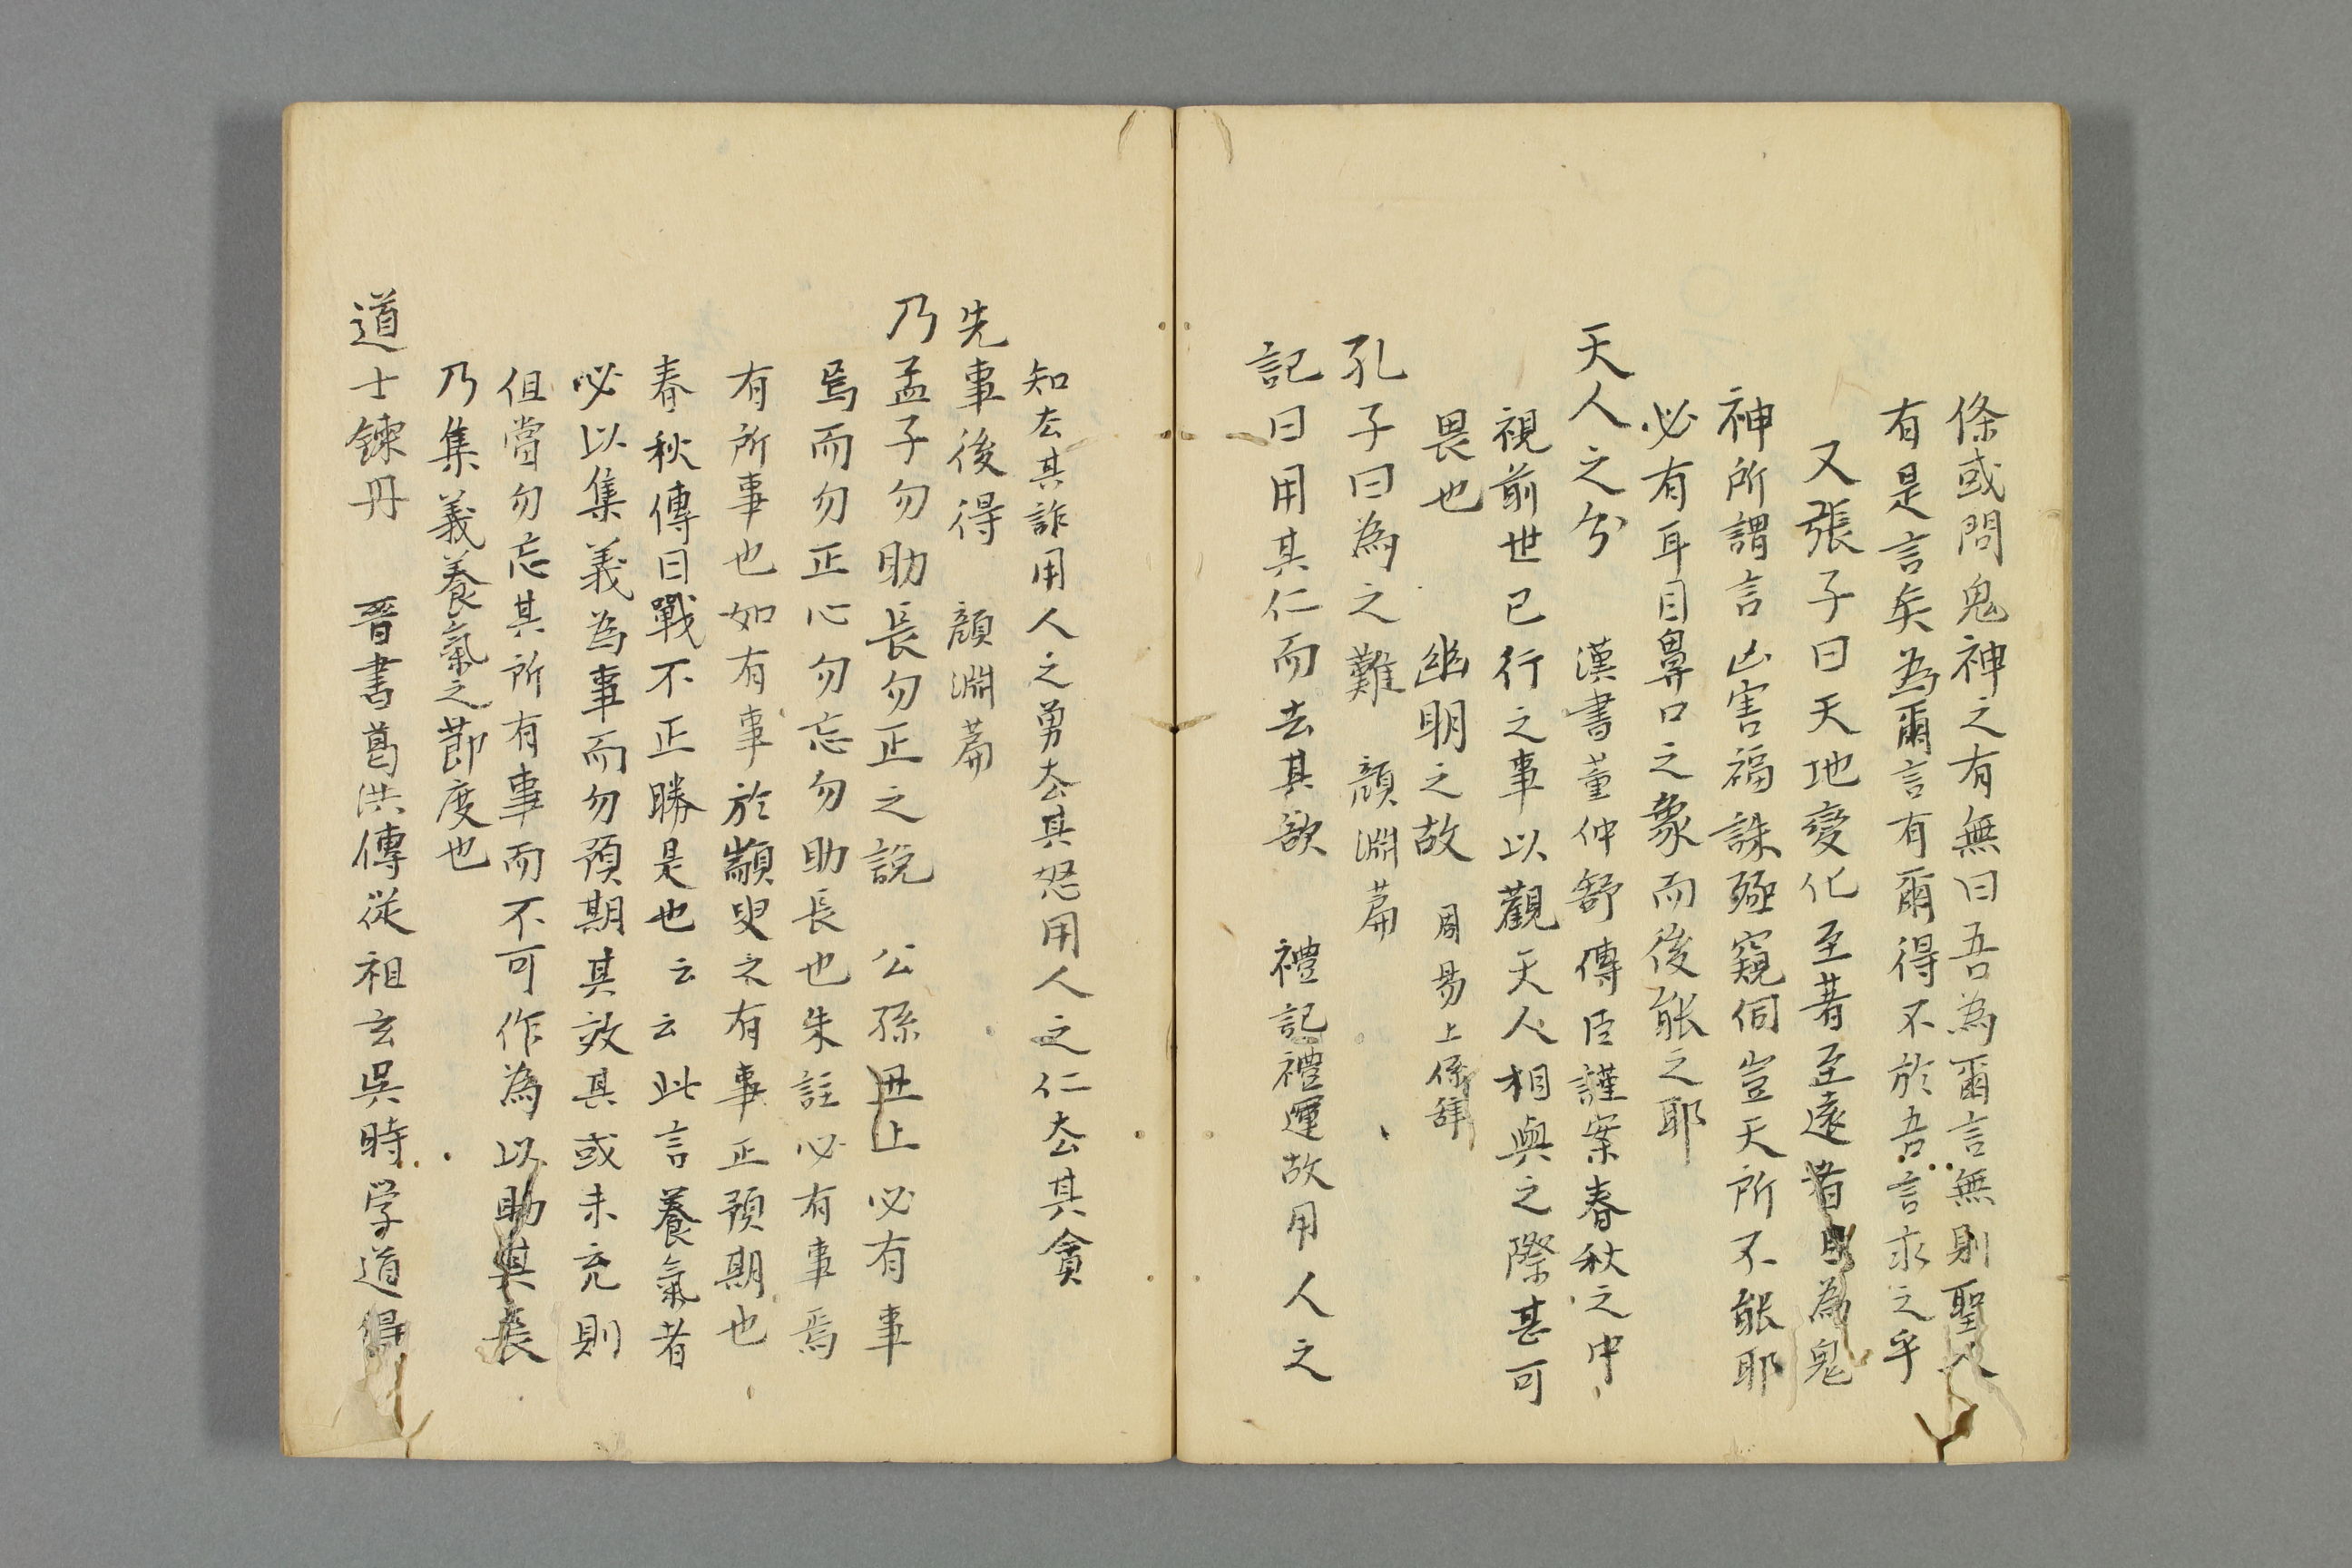 條或問鬼神之有無曰吾為爾言無則聖人
有是言矣為爾言有爾得不於吾言求之乎
又張子曰天地變化至著至遠者因為鬼
神所謂言凶害福誅殛窺伺豈天所不能耶
必有耳目鼻口之象而後能之耶
天人之分　漢書董仲舒傳臣謹案春秋之中
視前世已行之事以觀天人相與之際甚可
畏也　幽明之故　周易上係辞
孔子曰為之難　顏淵萹
記曰用其仁而去其欲　禮記禮運故用人之
知去其詐用人之勇去其怒用人之仁去其貪
先事後得　顏淵萹
乃孟子勿助長勿正之說　公孫丑上必有事
焉而勿正心勿忘勿助長也朱註必有事焉
有所事也如有事於顓臾之有事正預期也
春秋傳曰戰不正勝是也云云此言養氣者
必以集義為事而勿預期其效其或未充則
但當勿忘其所有事而不可作為以助其長
乃集義養氣之節度也
道士鍊丹　晋書葛洪傳從祖玄吳時学道得